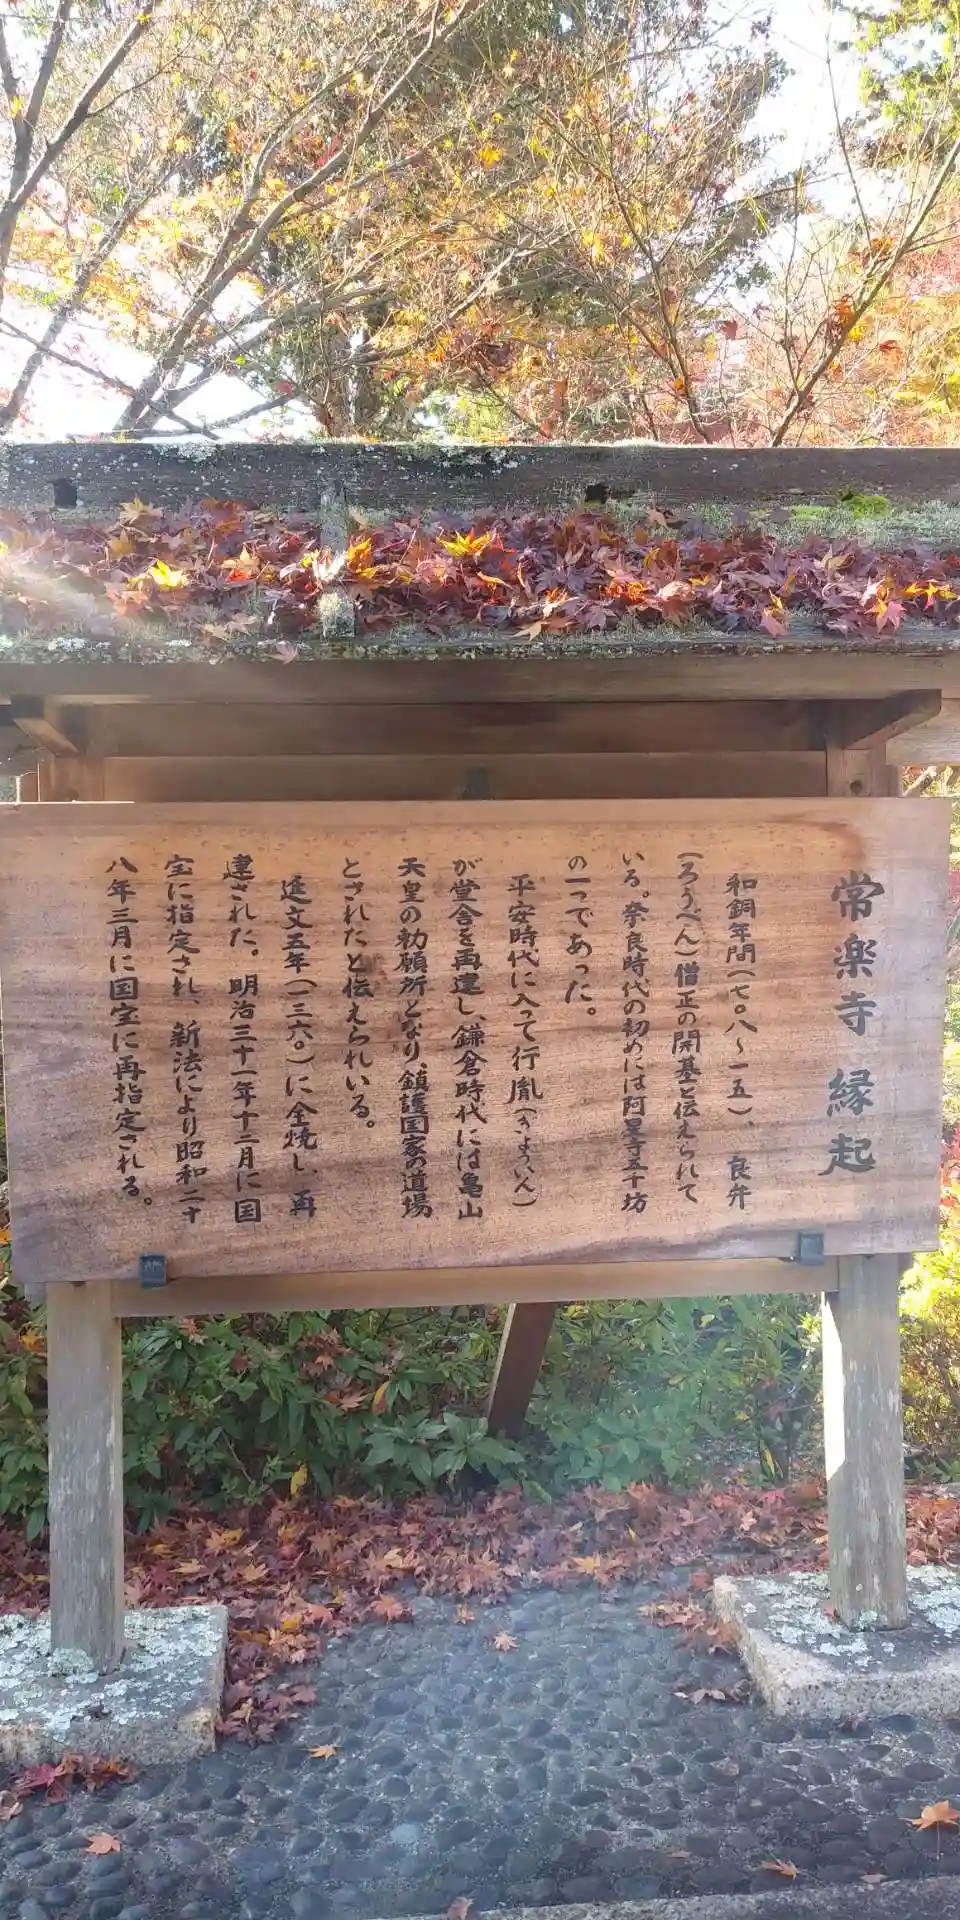 常楽寺縁起
和銅年間(七〇八〜一五)、良弁
(ろうべん)僧正の開基と伝えられて
いる。奈良時代の初めには阿星寺五千坊
の一つであった。
平安時代に入って行胤(ぎょういん)
が堂舎を再建し、鎌倉時代には亀山
天皇の勅願所となり、鎮護国家の道場
とされたと伝えられいる。
延文五年(一三六〇)に全焼し、再
建された。明治三十一年十二月に国
宝に指定され、新法により昭和二十
八年三月に国宝に再指定される。